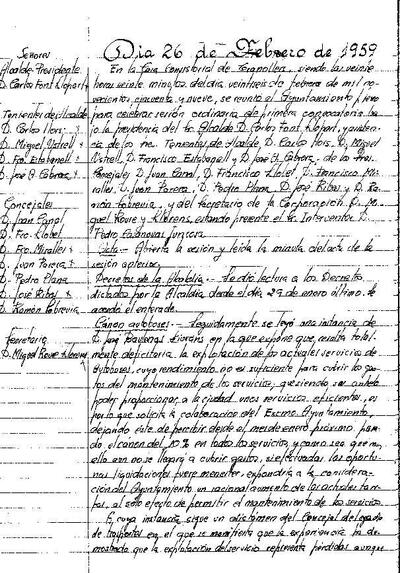 Señores
Alcalde-Presidente
D. Carlos Font Llopart
Tenientes de Alcalde
D. Carlos Mors
D. Miguel
D. Fco. Estabanell
D. José Cabrera
Concejales
D. Juan Canal
D. Fco. Llobet
D. Fco. Miralles
D. Juan Parera
D. Pedro Plana
D. José Ribas
D. Ramón
Secretario
D. Miguel Roure
Dia 26 de Febrero de 1959
En la Casa Consistorial de Granollers, siendo las veinte
horas veinte minutos del día veintiseis de febrero de mil no-
vecientos cincuenta y nueve, se reunió el Ayuntamiento pleno
para celebrar sesión ordinaria de primera convocatoria ba-
jo la presidencia del Sr. Alcalde D. Carlos Font Llopart, y asisten-
cia de los Sres. Tenientes de Alcalde, D. Carlos Mors, D. Miguel
D. Francisco Estabanell y D. José Cabrera, de los Sres.
Concejales D. Juan Canal, D. Francisco Llobet, D. Francisco Mi-
ralles, D. Juan Parera, D. Pedro Plana, D. José Ribas y D. Ra-
món y del Secretario de la Corporación D. Mi-
guel Roure y estando presente el Sr. Interventor D.
Pedro Casanovas
Acta.- Abierta la sesión y leída la minuta del acta de la
sesión anterior
Decretos de la Alcaldía.- Se dió lectura a los Decretos
dictados por la Alcaldía desde el día 29 de enero último. Se
acordó el enterado.
Cánon autobuses.- Seguidamente se leyó una instancia de
D. José en la que expone que, resulta total-
mente deficitaria la explotación de los actuales servicios de
Autobuses, cuyo rendimiento no es suficiente para cubrir los gas-
tos del mantenimiento de los servicios, queriendo ser
poder proporcionar a la ciudad unos servicios eficientes, es
por lo que solicita la colaboración del Excmo. Ayuntamiento,
dejando éste de percibir desde el mes de enero próximo pasa-
do el cánon del 10 % en todos los servicios, y como sea que con
ello aún no se llegará a cubrir gastos, si efectuadas las oportu-
nas liquidaciones fuere menester, expondría a la considera-
ción del Ayuntamiento un racional aumento de las actuales tari-
fas, al sólo efecto de permitir el mantenimiento de los servicios.
A cuya instancia sigue un dictámen del Concejal delegado
de trasportes en el que se manifiesta que la experiencia ha de-
mostrado que la explotación del servicio representa pérdidas aunque